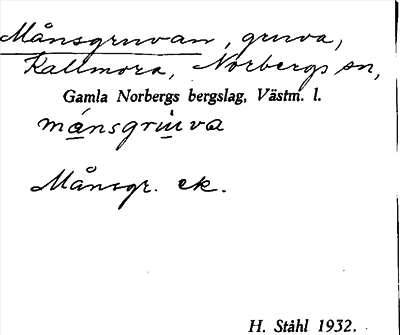 Månsgruvan, gruva,
Kallmora, Norbergs sn,
Gamla Norbergs bergslag, Västm. l.
mánsgrùva
Månsgr. ek.
H. Ståhl 1932.